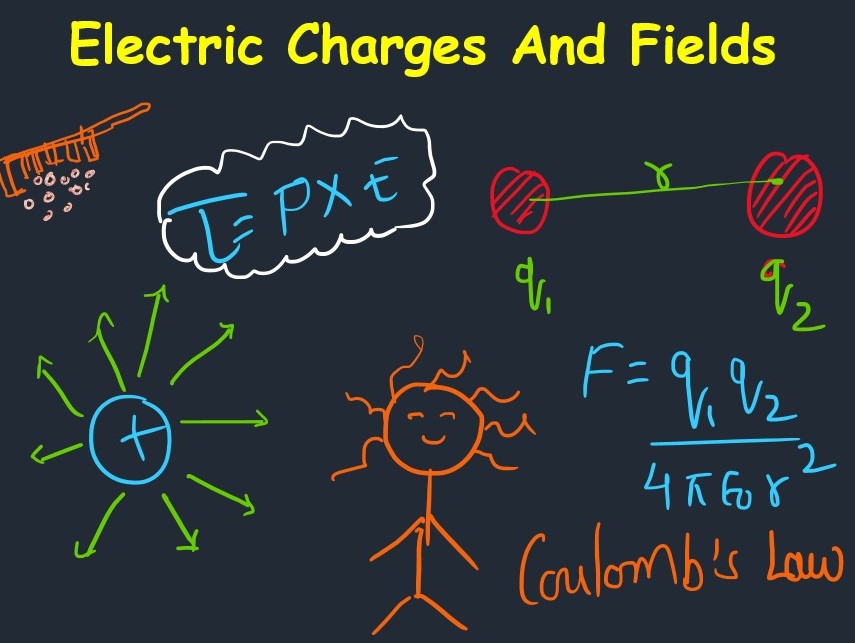 Electric Charges And Fields
τ = P × E
r
q₁
q₂
+
F = q₁ q₂
4 π ε₀ r²
Coulomb's Law